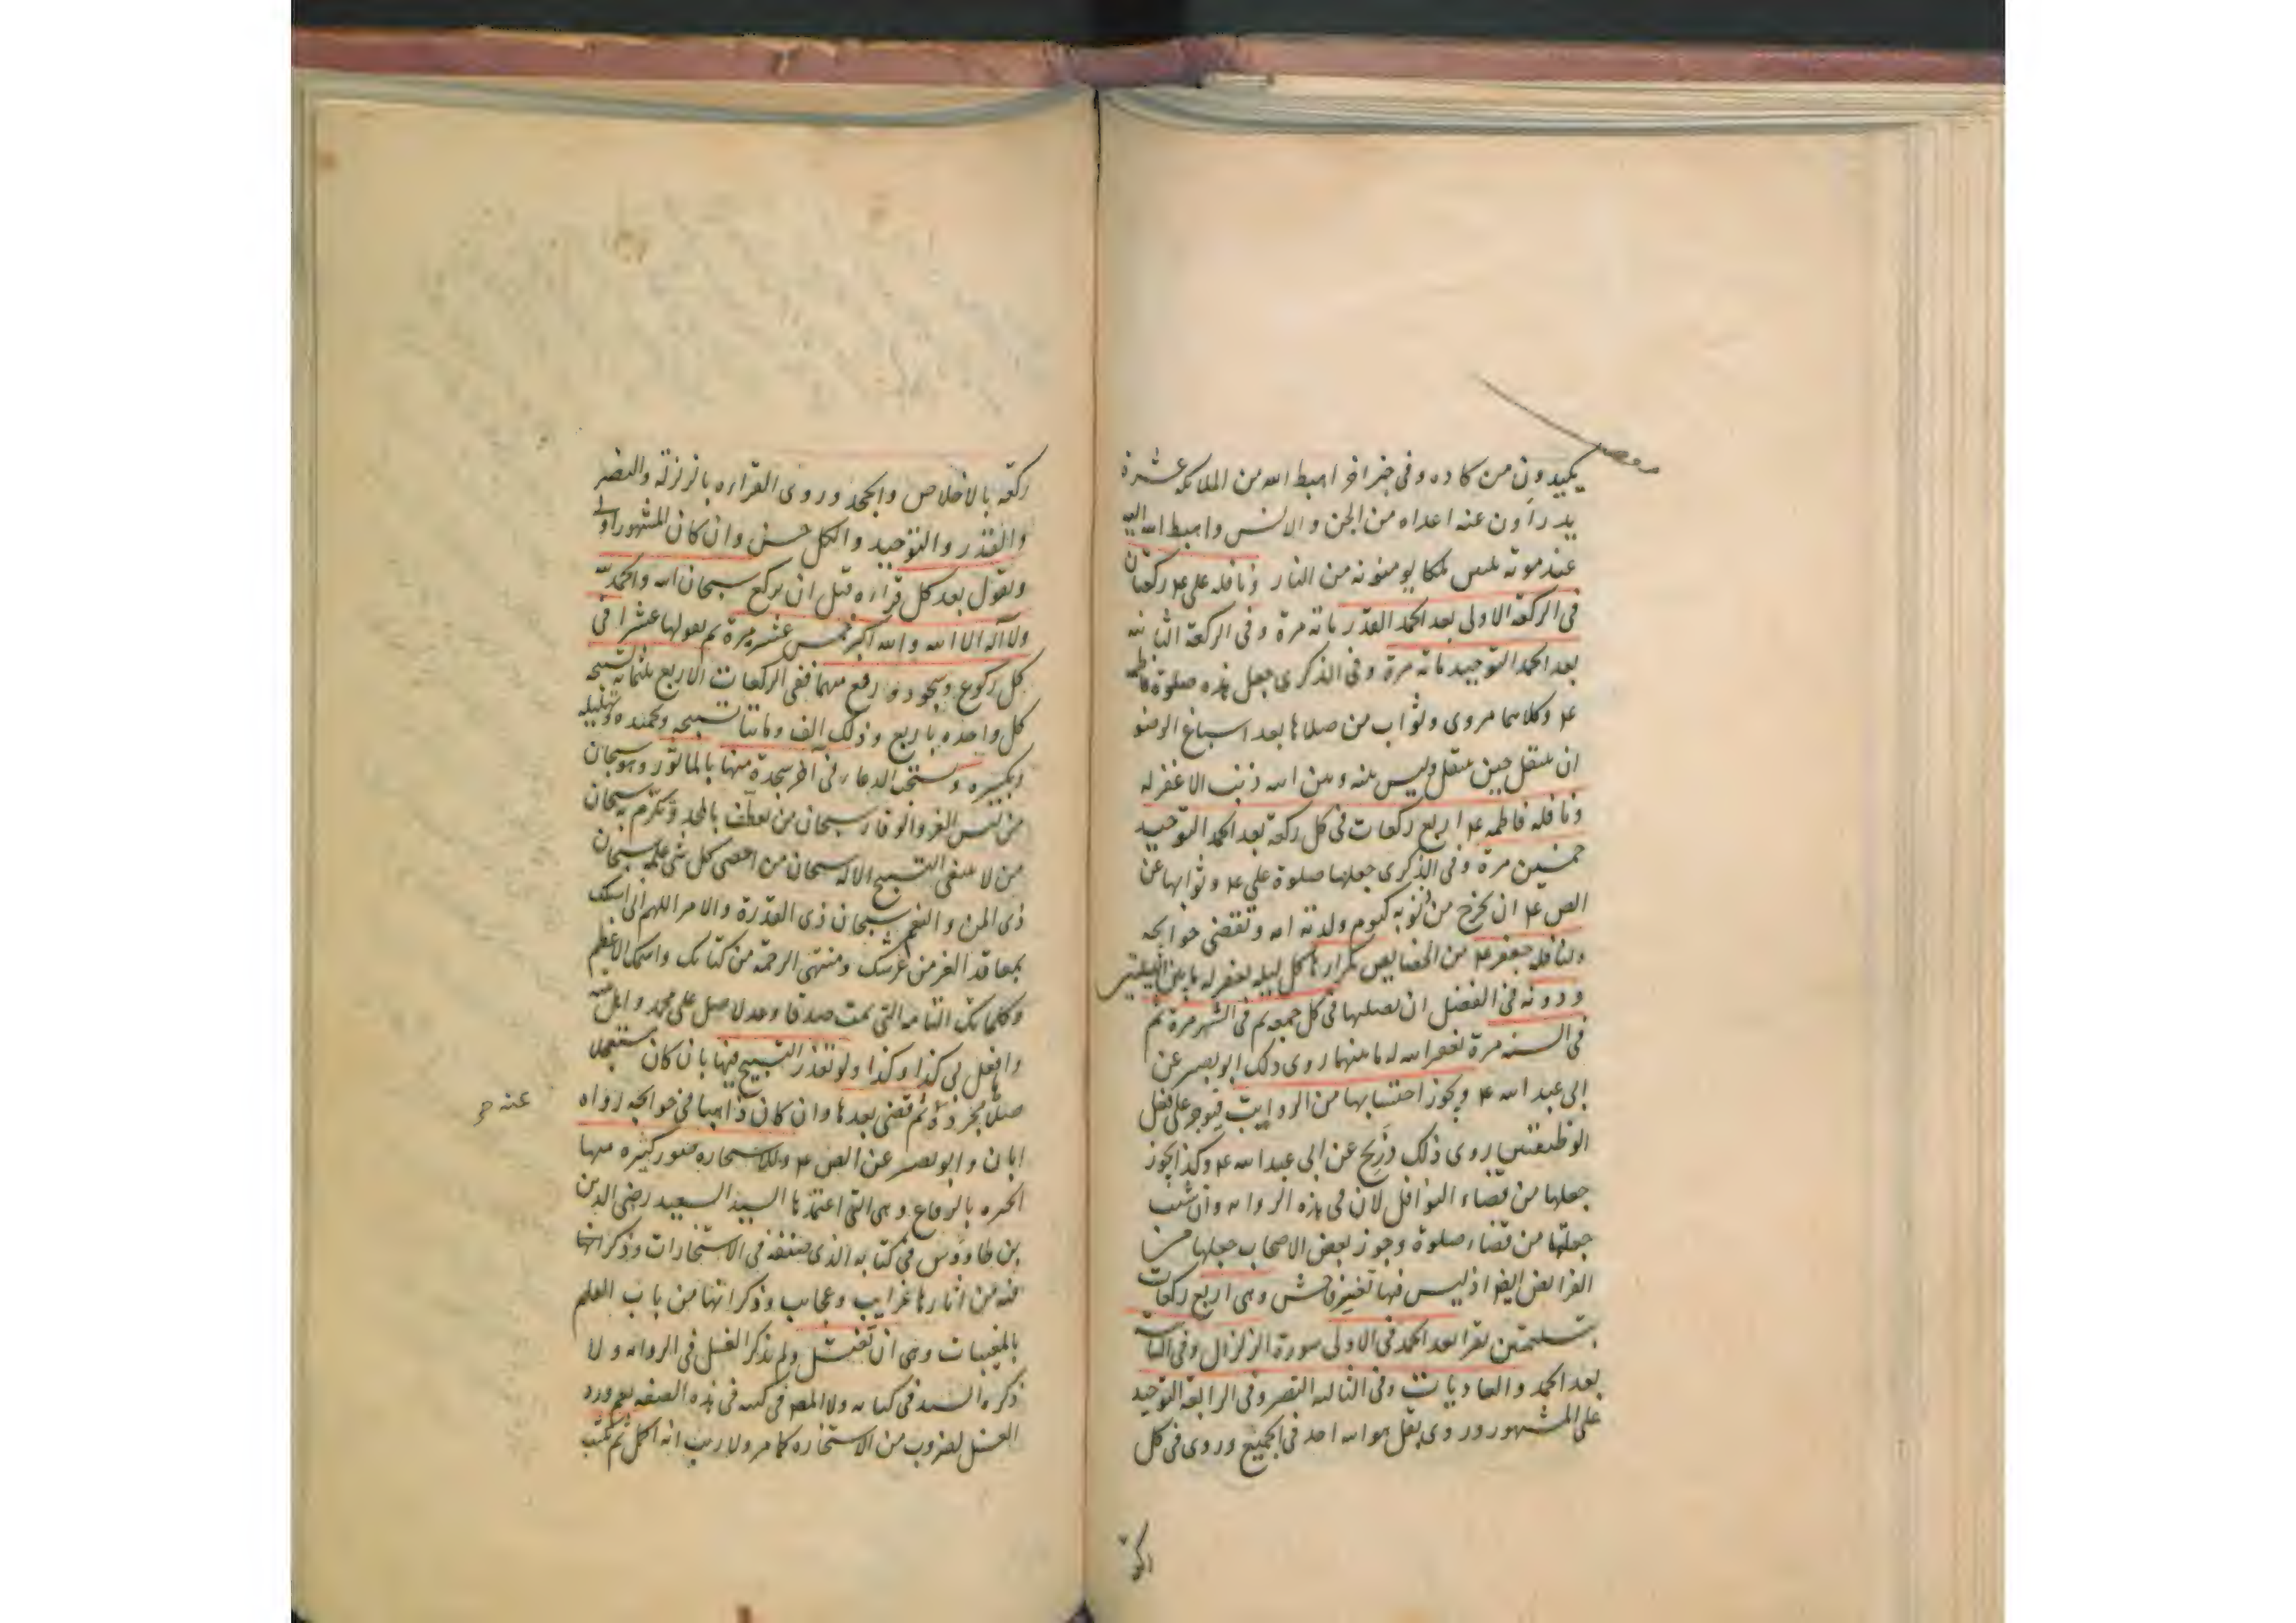 يكيدون من كاده وفى خبر اخر اهبط الله من الملائكة عشرة
يدرأون عنه اعداه من الجن والانس واهبط الله اليه
عند موته ملكا يومنونه من النار ونافله على ع ركعتان
فى الركعة الاولى بعد الحمد القدر مائة مرة وفى الركعة الثانية
بعد الحمد التوحيد مائة مرة وفى الذكرى جعل هذه صلوة فاطمة
ع وكلاهما مروى وثواب من صلاها بعد اسباغ الوضو
ان ينتقل حين ينتقل وليس بينه وبين الله ذنب الا غفر له
ونافله فاطمه ع اربع ركعات فى كل ركعة بعد الحمد التوحيد
خمسين مرة وفى الذكرى جعلها صلوة على ع وثوابها عن
الص ع ان يخرج من ذنوبه كيوم ولدته امه وتقضى حوائجه
ولنافلة جعفر ع من الخصايص تكرارها كل ليله يغفر له ما بين الليلتين
ودونه فى الفضل ان يصليها فى كل جمعه ثم فى الشهر مرة ثم
فى السنه مرة يغفر الله له ما بينهما روى ذلك ابو بصير عن
ابى عبد الله ع ويجوز احتسابها من الرواتب فيوجر على فعل
الوظيفتين روى ذلك ذريح عن ابى عبد الله ع وكذا يجوز
جعلها من قضاء النوافل لان فى هذه الروايه وان شئت
جعلتها من قضاء صلوة وجوز بعض الاصحاب جعلها من
الفرائض ايضا اذ ليس فيها تغيير فاحش وهى اربع ركعات
بتسليمتين يقرا بعد الحمد فى الاولى سورة الزلزال وفى الثانية
بعد الحمد والعاديات وفى الثالثه النصر وفى الرابعة التوحيد
على المشهور وروى بقل هو الله احد فى الجميع وروى فى كل
ركعة بالاخلاص والجحد وروى القراءه بالزلزلة والنصر
والقدر والتوحيد والكل حسن وان كان المشهور اولى
ويقول بعد كل قراءه قبل ان يركع سبحان الله والحمد لله
ولا اله الا الله والله اكبر خمس عشر مرة ثم يقولها عشرا فى
كل ركوع وسجود ورفع منهما ففى الركعات الاربع ثلثمائه تسبيحه
كل واحده باربع وذلك الف ومائتا تسبيحه وتحميده وتهليله
وتكبيره ويستحب الدعاء فى آخر سجدة منها بالماثور وهو سبحان
من لبس العز والوقار سبحان من تعطف بالمجد وتكرم به سبحان
من لا ينبغى التسبيح الا له سبحان من احصى كل شى علمه سبحان
ذى المن والنعم سبحان ذى القدرة والامر اللهم انى اسئلك
بمعاقد العز من عرشك ومنتهى الرحمة من كتابك واسمك الاعظم
وكلماتك التامه التى تمت صدقا وعدلا صل على محمد واهل بيته
وافعل بى كذا وكذا ولو تعذر التسبيح فيها بان كان مستعجلا
صلاها مجردة ثم قضى بعدها وان كان ذاهبا فى حوائجه رواه
عنه
ابان وابو بصير عن الص ع وللاستخاره صور كثيره منها
الخيره بالرقاع وهى التى اعتمدها السيد السعيد رضى الدين
بن طاووس فى كتابه الذى صنفه فى الاستخارات وذكر انها
فيه من اثارها غرايب وعجايب وذكر انها من باب العلم
بالمغيبات وهى ان تغتسل ولم يذكر الغسل فى الروايه ولا
ذكره السيد فى كتابه ولا المص فى كتبه فى هذه الصفه نعم ورد
الغسل لضروب من الاستخاره كما مر ولا ريب انه اكمل ثم تكتب